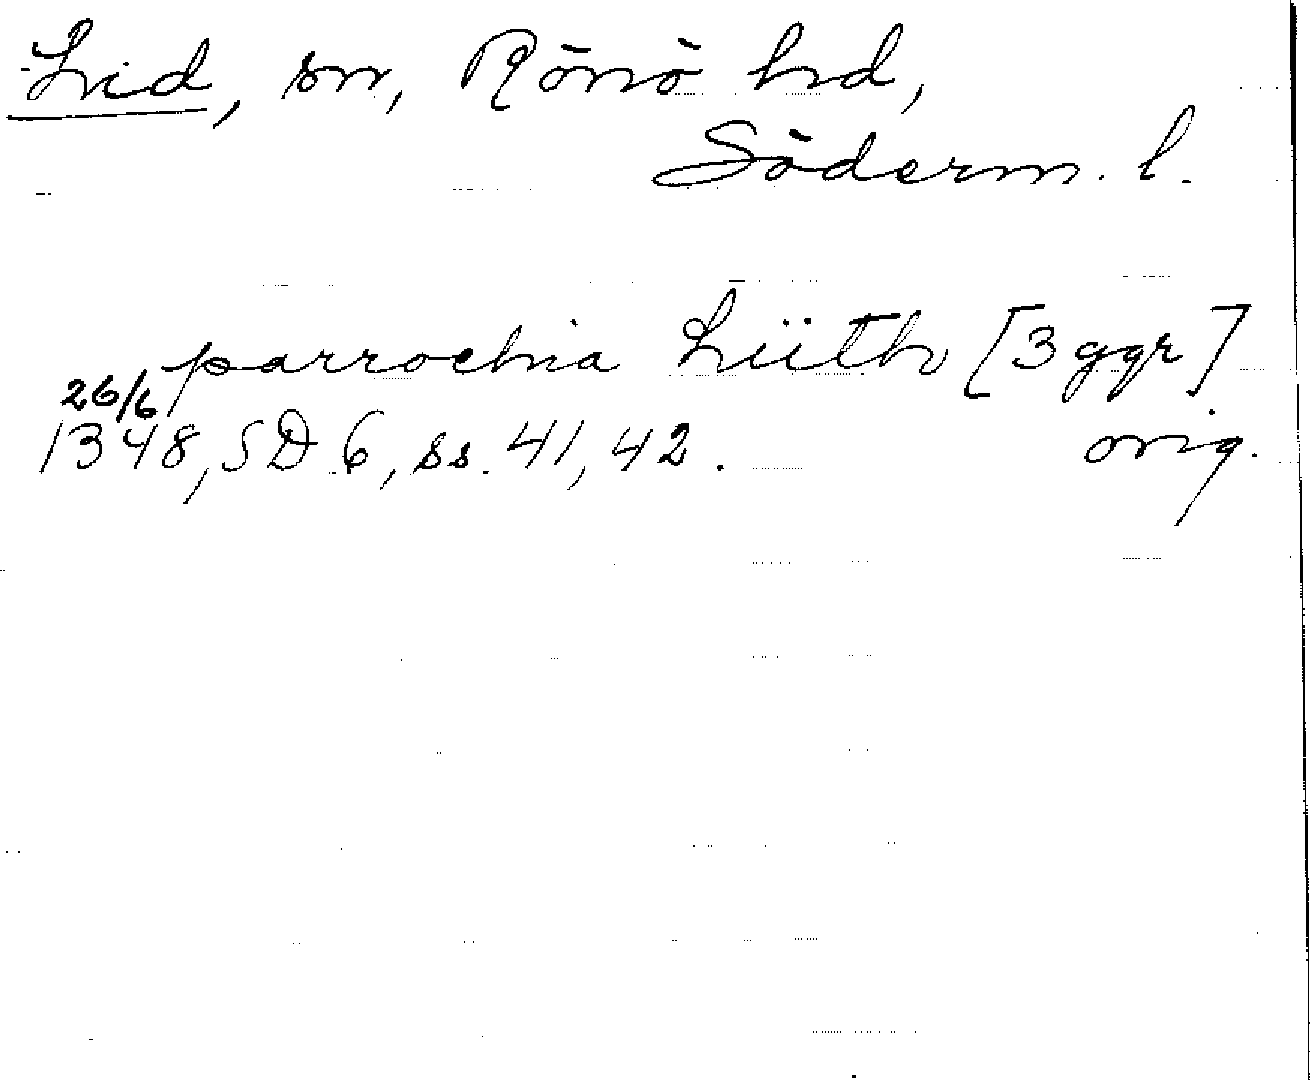 Lid, sn, Rönö hd,
Söderm. l.
parrochia Liith [3 ggr]
26/6 1348, SD 6, ss. 41, 42. orig.